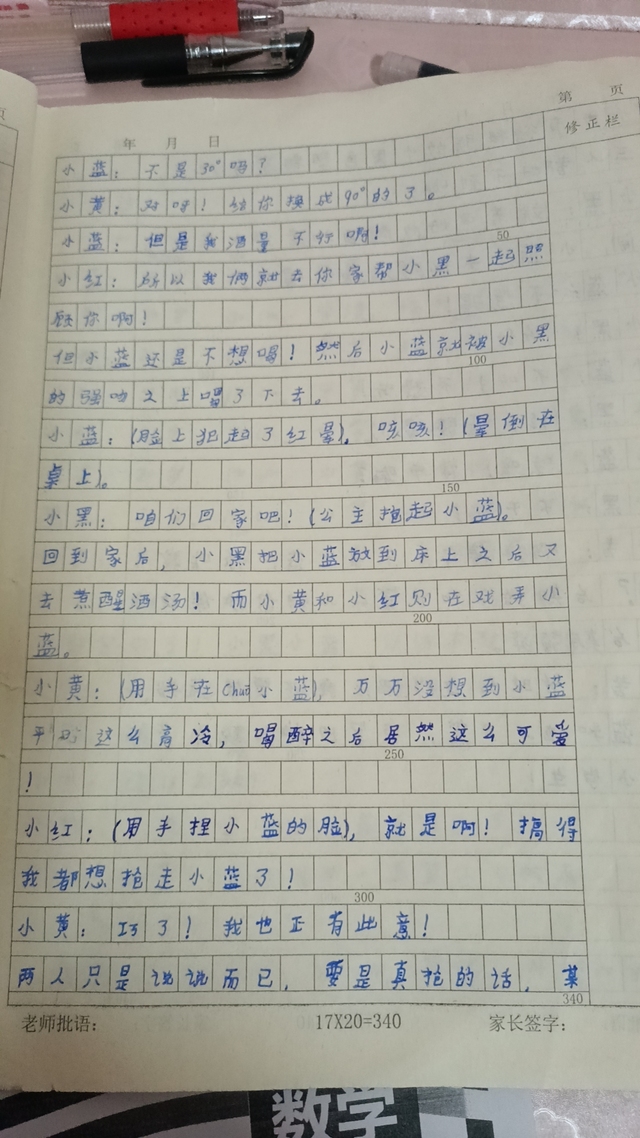 第 页
页
修正栏
年 月 日
小蓝：不是30°吗？
小黄：对呀！给你换成90°的了。
小蓝：但是我酒量不行啊！
50
小红：所以我俩就去你家帮小黑一起照
顾你啊！
但小蓝还是不想喝！然后小蓝就被小黑
100
的强吻之上喝了下去。
小蓝：(脸上犯起了红晕)，咳咳！(晕倒在
桌上)。
150
小黑：咱们回家吧！(公主抱起小蓝)。
回到家后，小黑把小蓝放到床上之后又
去煮醒酒汤！而小黄和小红则在戏弄小
200
蓝。
小黄：(用手在chuō小蓝)，万万没想到小蓝
平时这么高冷，喝醉之后居然这么可爱
250
！
小红：(用手捏小蓝的脸)，就是啊！搞得
我都想抢走小蓝了！
300
小黄：巧了！我也正有此意！
两人只是说说而已，要是真抢的话，某
340
老师批语：
17X20=340
家长签字：
数学